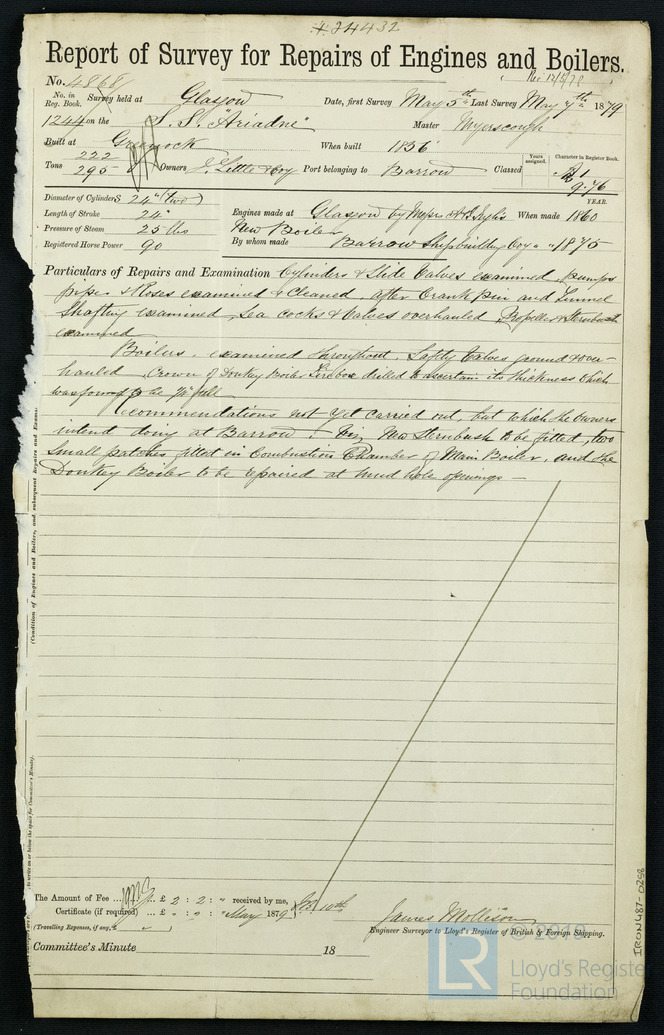 I.24432
Report of Survey for Repairs of Engines and Boilers.
No. 4868 (Rec 12/5/79)
No. in Reg. Book. Survey held at Glasgow Date, first Survey May 5th Last Survey May 7th 1879
1244 on the S.S. "Ariadne" Master Myerscough
Built at Greenock When built 1856
Tons 222 295 Owners J. Little & Coy Port belonging to Barrow Classed Years assigned. Character in Register Book. A1 9.76 YEAR.
Diameter of Cylinders 24" (two)
Length of Stroke 24"
Pressure of Steam 25 lbs
Registered Horse Power 90
Engines made at Glasgow by Messrs A & J Inglis When made 1860
New Boiler
By whom made Barrow Shipbuilding Coy " " 1875
Particulars of Repairs and Examination Cylinders & Slide Valves examined, pumps
pipes & Roses examined & cleaned, after Crank pin and Tunnel
Shafting examined, Sea cocks & Valves overhauled, Propeller & Sternbush
examined
Boilers. examined throughout. Safety Valves ground & over-
hauled Crown of Donkey Boiler Firebox drilled to ascertain its thickness which
was found to be full
Recommendations not yet carried out, but which the owners
intend doing at Barrow. Viz New Sternbush to be fitted, two
Small patches fitted in Combustion Chamber of Main Boiler, and the
Donkey Boiler to be repaired at mud hole openings —
(Condition of Engines and Boilers, and subsequent Repairs and Exams.
to write on or below the space for Committee's Minute.
The Amount of Fee ... £ 2 : 2 : " received by me,
Certificate (if required) ... £ " : " : " May 1879 10th
(Travelling Expenses, if any, £ " )
James Mollison
Engineer Surveyor to Lloyd's Register of British & Foreign Shipping.
Committee's Minute 18
IRON487-0258
LR Lloyd's Register
Foundation